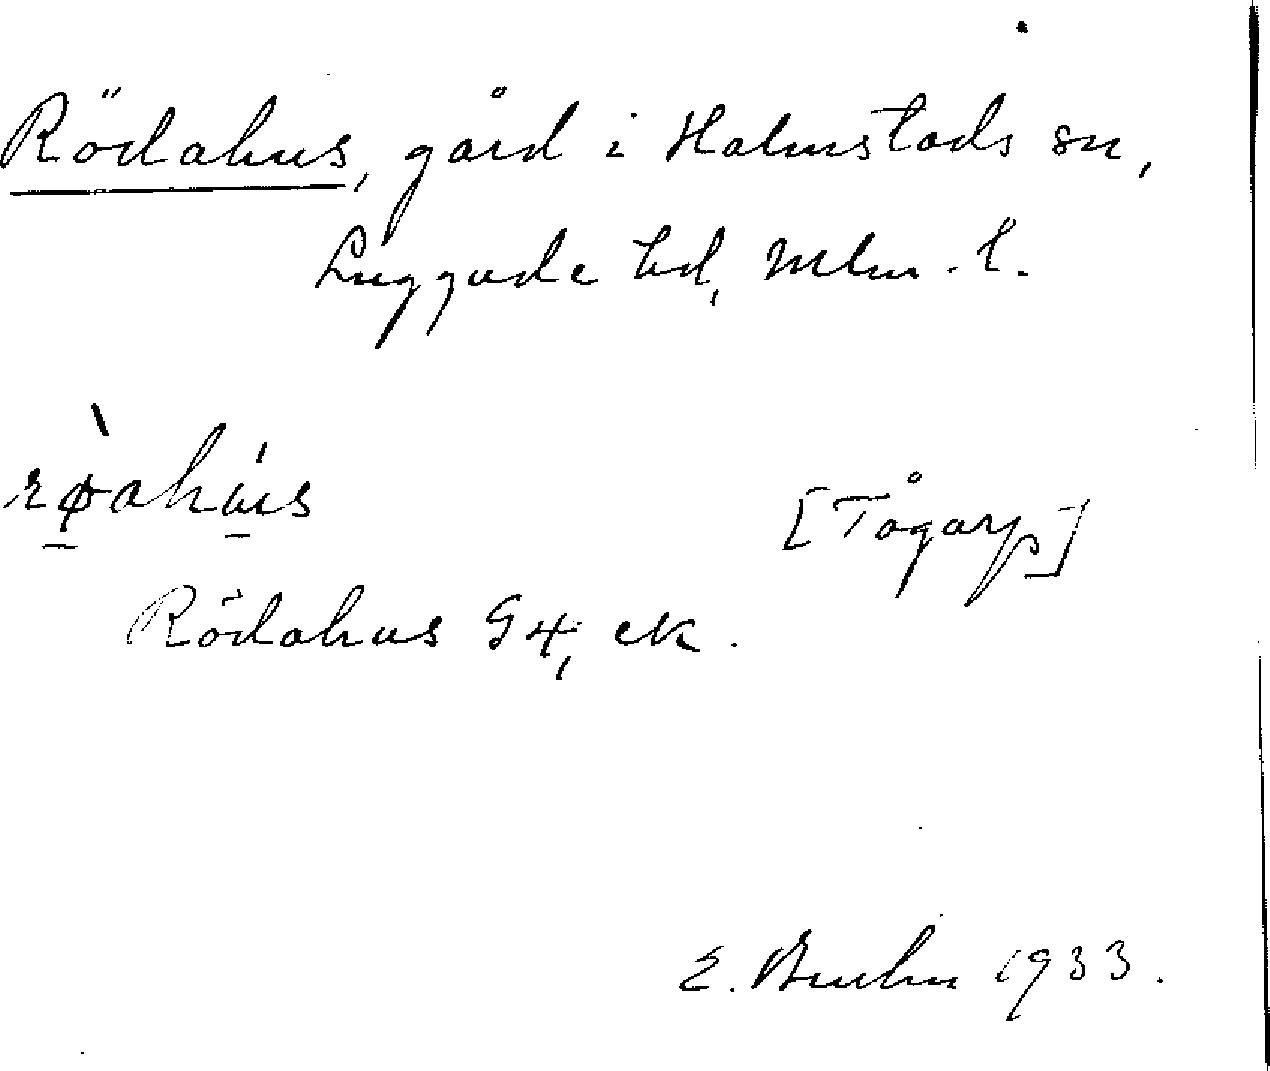 Rödahus, gård i Halmstads sn,
Luggude hd, Mlm. l.
rø̀ahús [Tågarp]
Rödahus G4, ek.
E. Bruhn 1933.